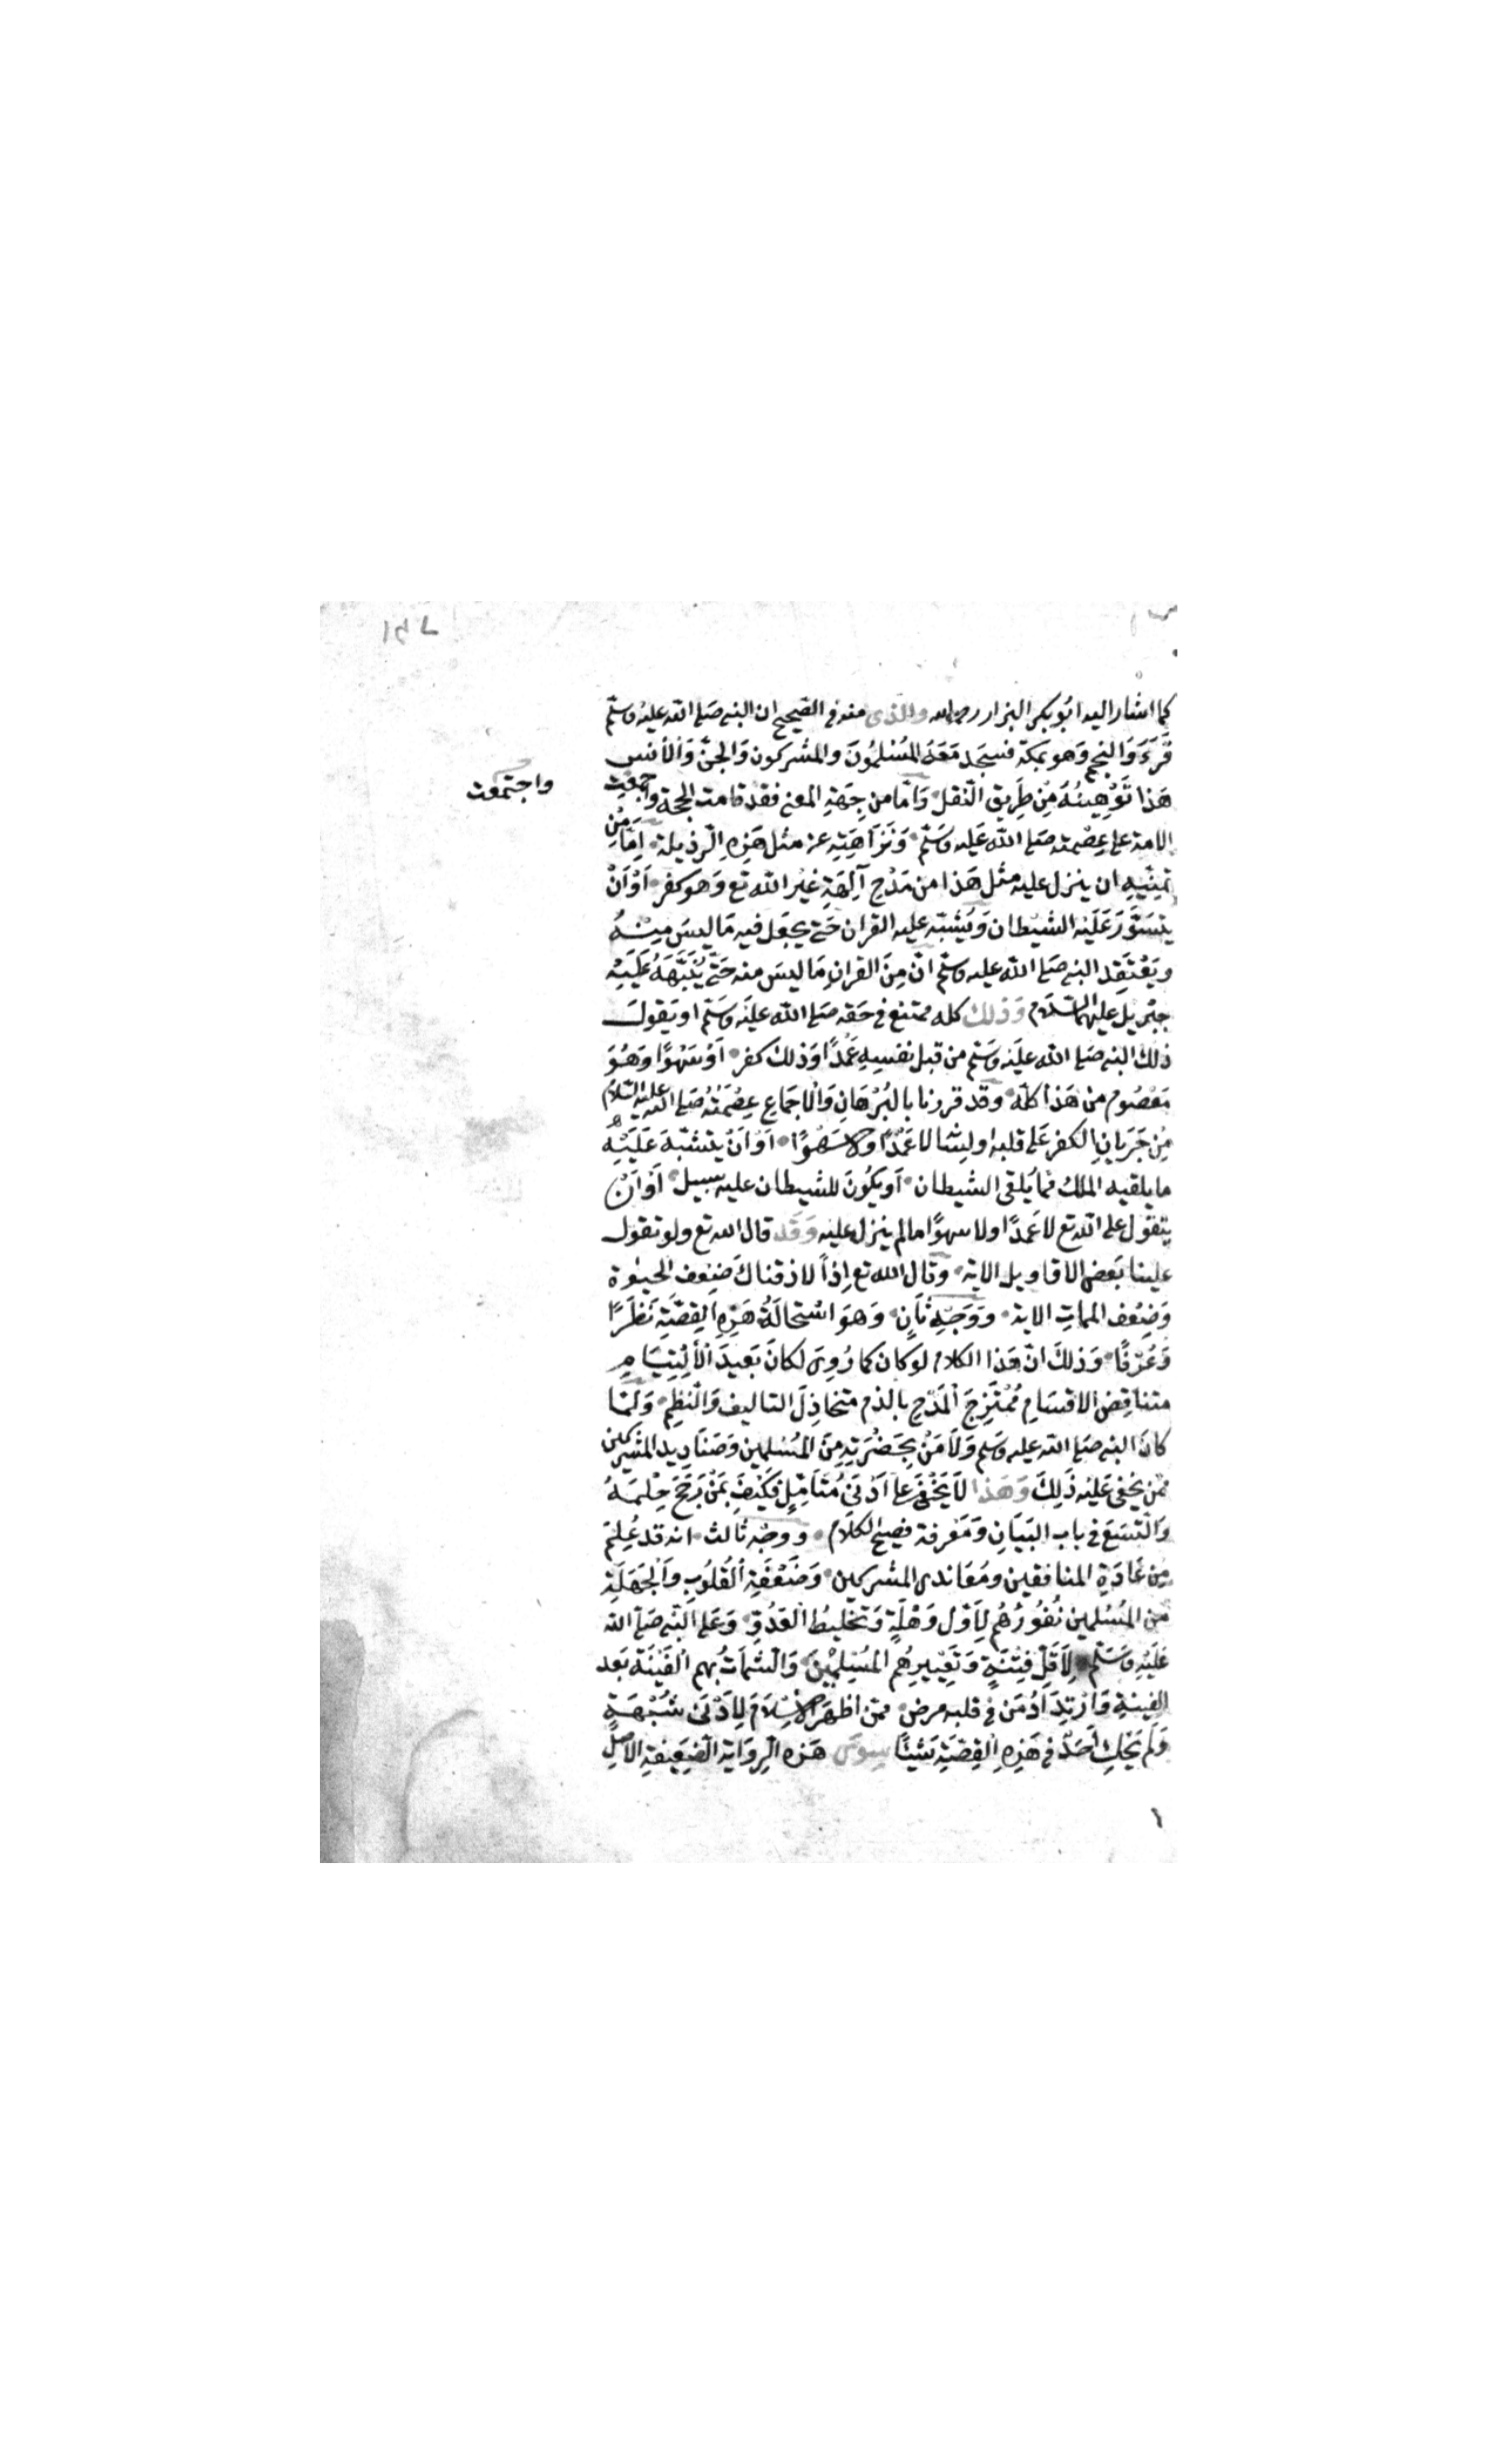 كما اشار اليه ابو بكر البزار رحمه الله والذى منه فى الصحيح ان النبى صلى الله عليه وسلم
قرء والنجم وهو بمكة فسجد معه المسلمون والمشركون والجن والانس
هذا توهينه من طريق النقل واما من جهة المعنى فقد قامت الحجة واجمعت
واجتمعت
الامة على عصمته صلى الله عليه وسلم ونزاهته عن مثل هذه الرذيلة اما من
تمنيه ان ينزل عليه مثل هذا من مدح آلهة غير الله تع وهو كفر او ان
يتسور عليه الشيطان ويشبه عليه القران حتى يجعل فيه ما ليس منه
ويعتقد النبى صلى الله عليه وسلم ان من القران ما ليس منه حتى ينبهه عليه
جبريل عليهما السلام وذلك كله ممتنع فى حقه صلى الله عليه وسلم او يقول
ذلك النبى صلى الله عليه وسلم من قبل نفسه عمدا وذلك كفر او سهوا وهو
معصوم من هذا كله وقد قررنا بالبرهان والاجماع عصمته صلى الله عليه
من جريان الكفر على قلبه او لسانه لا عمدا ولا سهوا او ان يتشبه عليه
ما يلقيه الملك مما يلقى الشيطان او يكون للشيطان عليه سبيل او ان
يتقول على الله تع لا عمدا ولا سهوا ما لم ينزل عليه وقد قال الله تع ولو تقول
علينا بعض الاقاويل الاية وقال الله تع اذا لاذقناك ضعف الحيوة
وضعف الممات الاية ووجه ثان وهو استحالة هذه القصة نظرا
وعرفا وذلك ان هذا الكلام لو كان كما روى لكان بعيد الالتيام
متناقض الاقسام ممتزج المدح بالذم متخاذل التاليف والنظم ولما
كان النبى صلى الله عليه وسلم ولا من بحضرته من المسلمين وصناديد المشركين
ممن يخفى عليه ذلك وهذا لا يخفى على ادنى متامل فكيف بمن رجح حلمه
واتسع فى باب البيان ومعرفة فصيح الكلام ووجه ثالث انه قد علم
من عادة المنافقين ومعاندى المشركين وضعفة القلوب والجهلة
من المسلمين نفورهم لاول وهلة وتخليط العدو وعلى النبى صلى الله
عليه وسلم لاقل فتنة وتعييرهم المسلمين والشمات بهم الفينة بعد
الفينة وارتداد من فى قلبه مرض ممن اظهر الاسلام لادنى شبهة
ولم يحك احد فى هذه القصة شيئا سوى هذه الرواية الضعيفة الاصل